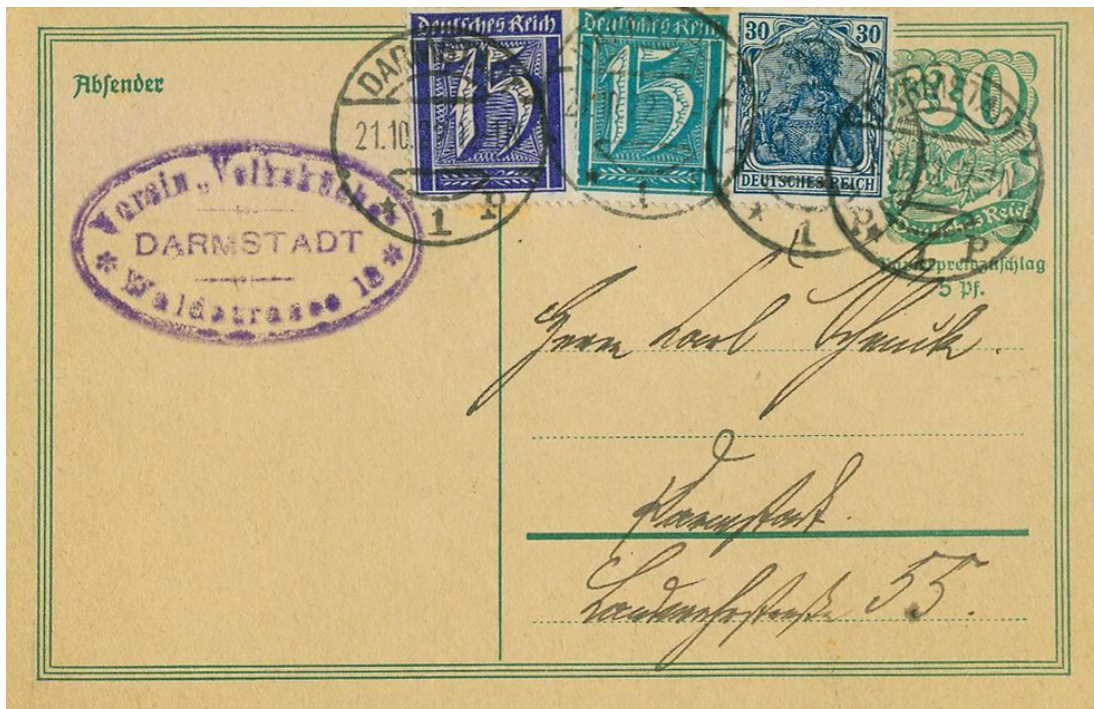 Absender
Verein „Volksküche"
DARMSTADT
* Waldstrasse 18 *
Deutsches Reich
15
Deutsches Reich
15
30 30
DEUTSCHES REICH
30
Deutsches Reich
Papierpreiszuschlag
5 Pf.
DARMSTADT
21.10.
* 1 P
* 1
* 1 P
DARMSTADT
* 1 P
Herrn Karl Schenck.
Darmstadt.
Landwehrstraße 55.